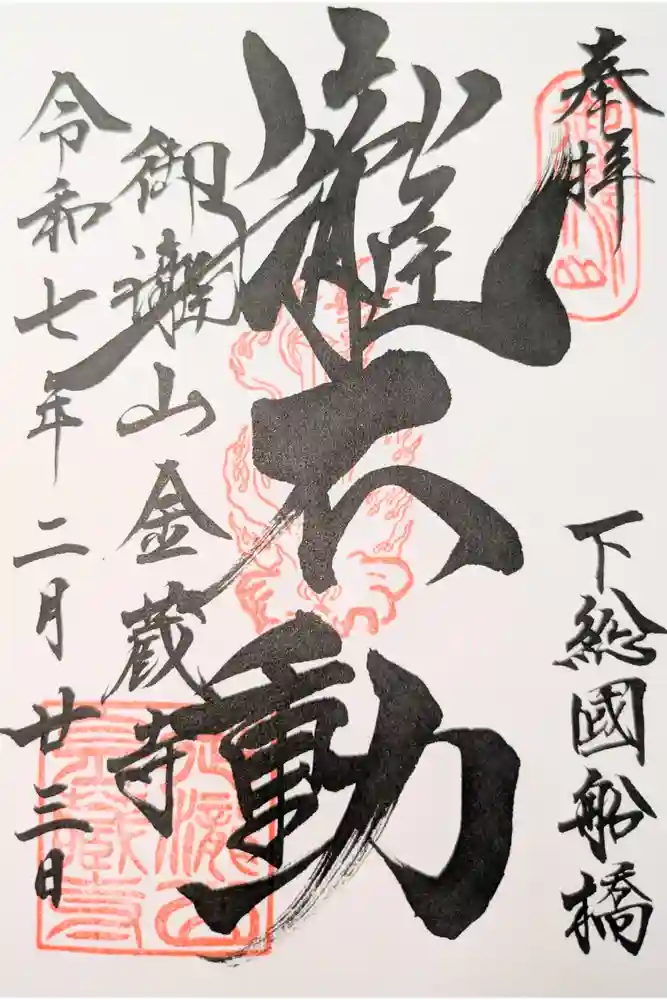 奉拝
下総國船橋
瀧不動
御瀧山金蔵寺
令和七年二月廿三日